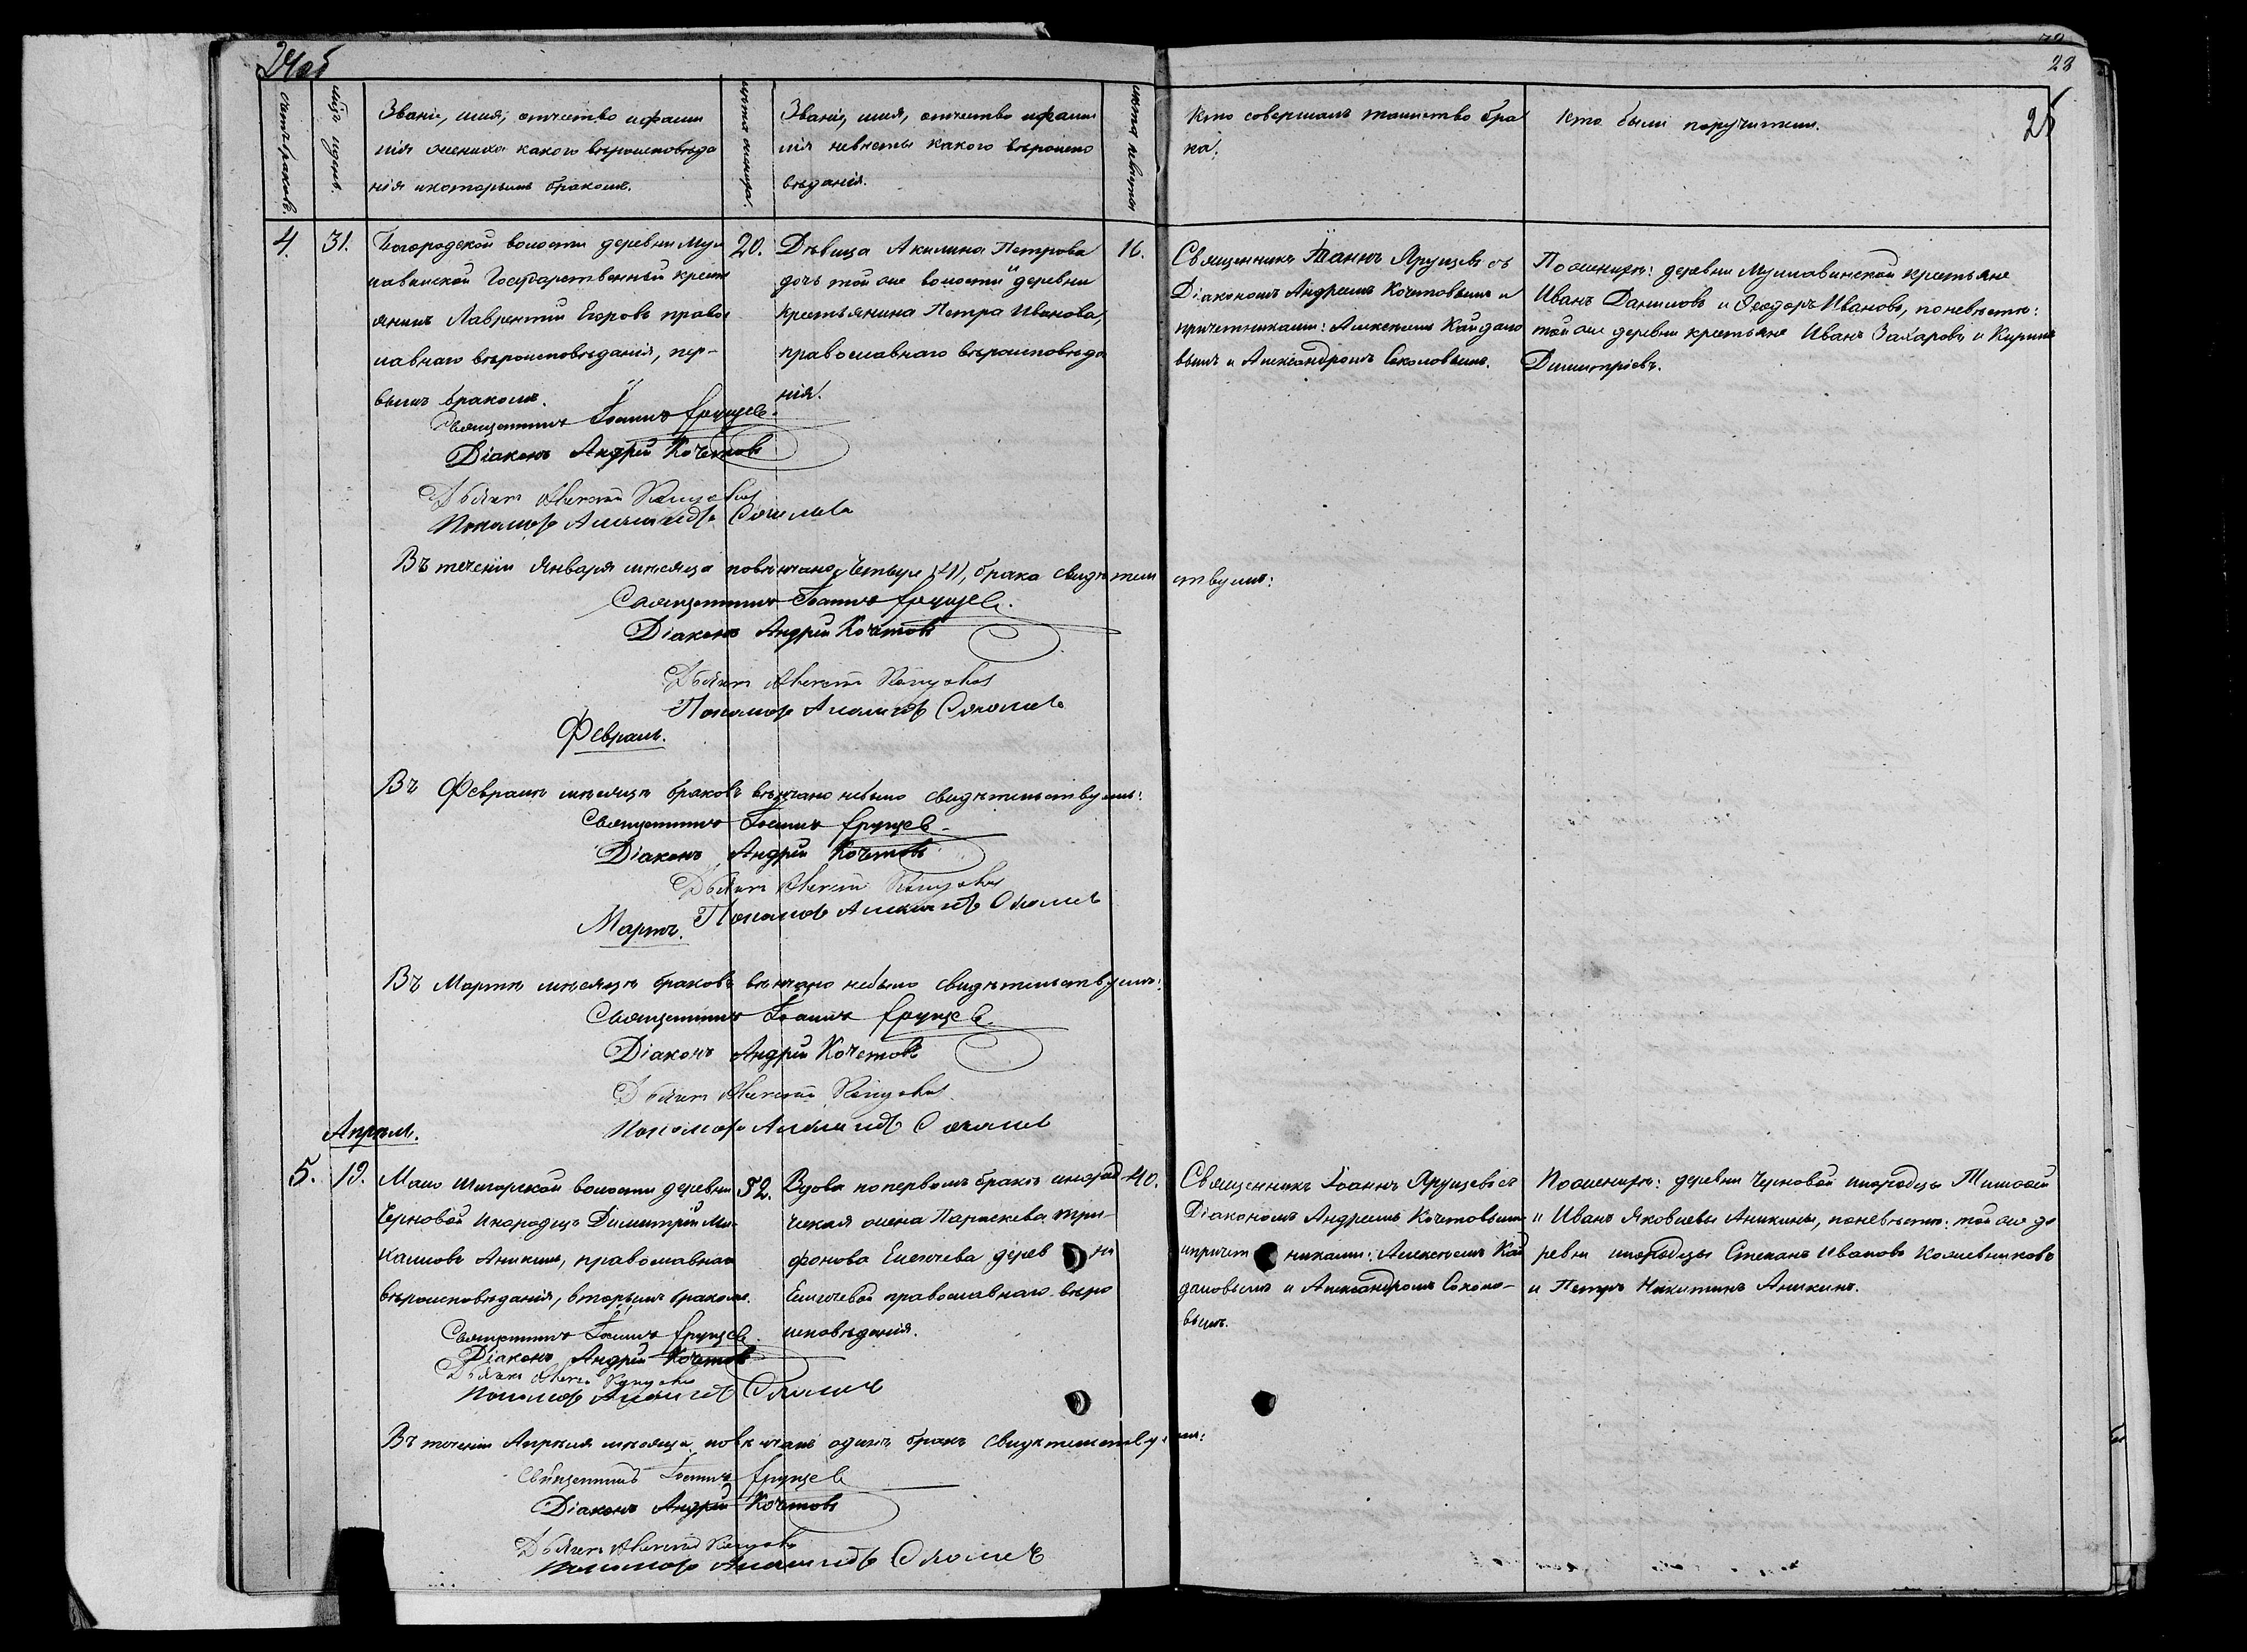 28
25
Счетъ браковъ.
Мѣсяцъ и день.
Званіе, имя, отчество и фами
лія жениха какого вѣроисповѣда
нія и которымъ бракомъ.
Лѣта жениха.
Званіе, имя, отчество и фами
лія невѣсты какого вѣроиспо
вѣданія.
Лѣта невѣсты
Кто совершалъ таинство бра
ка.
Кто были поручители.
4.
31.
Богородской волости деревни
Государственный крест
янинъ Лаврентій Егоровъ право
славнаго вѣроисповѣданія, пер-
вымъ бракомъ.
20.
Дѣвица Акилина Петрова
дочь той же волости и деревни
крестьянина Петра Иванова,
православнаго вѣроисповѣда
нія.
16.
Священникъ Іоаннъ Ярущевъ съ
Діакономъ Андреемъ Кочетовымъ и
причетниками: Алексѣемъ Кайдало
вымъ и Александромъ Соколовымъ.
По женихѣ: деревни крестьяне
Иванъ Даниловъ и Ѳеодоръ Ивановъ, по невѣстѣ:
той же деревни крестьяне Иванъ Захаровъ и Кирилъ
Димитріевъ.
Священникъ Іоаннъ Ярущевъ
Діаконъ Андрей Кочетовъ
Дьячекъ Алексей Кайдаловъ
Пономарь Александръ Соколовъ
Въ теченіи Января мѣсяца повѣнчано четыре /4/, брака свидѣтель ствуемъ:
Священникъ Іоаннъ Ярущевъ.
Діаконъ Андрей Кочетовъ
Дьячекъ Алексей Кайдаловъ
Пономарь Александръ Соколовъ
Февраль.
Въ Февралѣ мѣсяцѣ браковъ вѣнчано небыло свидѣтельствуемъ:
Священникъ Іоаннъ Ярущевъ
Діаконъ Андрей Кочетовъ
Дьячекъ Алексей Кайдаловъ
Пономарь Александръ Соколовъ
Мартъ.
Въ Мартѣ мѣсяцѣ браковъ вѣнчано небыло свидѣтельствуемъ:
Священникъ Іоаннъ Ярущевъ
Діаконъ Андрей Кочетовъ
Дьячекъ Алексей Кайдаловъ
Пономарь Александръ Соколовъ
Апрѣль.
5.
19.
Мало Шегарской волости деревни
Черновой инородецъ Димитрій Ми-
хаиловъ Аникинъ, православнаго
вѣроисповѣданія, вторымъ бракомъ.
52.
Вдова по первомъ бракѣ инород
ческая жена Параскева Три-
фонова дерев ни
православнаго вѣро
исповѣданія.
40.
Священникъ Іоаннъ Ярущевъ съ
Діакономъ Андреемъ Кочетовымъ
и причет никами: Алексѣемъ Кай
даловымъ и Александромъ Соколо-
вымъ.
По женихѣ: деревни Черновой инородцы Тимофей
и Иванъ Яковлевы Аникины, по невѣстѣ: той же де
ревни инородцы Степанъ Ивановъ Кожевниковъ
и Петръ Никитинъ Аникинъ.
Священникъ Іоаннъ Ярущевъ.
Діаконъ Андрей Кочетовъ
Дьячекъ Алексей Кайдаловъ
Пономарь Александръ Соколовъ
Въ теченіи Апрѣля мѣсяца повѣнчанъ одинъ бракъ свидѣтельствуемъ:
Священникъ Іоаннъ Ярущевъ
Діаконъ Андрей Кочетовъ
Дьячекъ Алексей Кайдаловъ
Пономарь Александръ Соколовъ